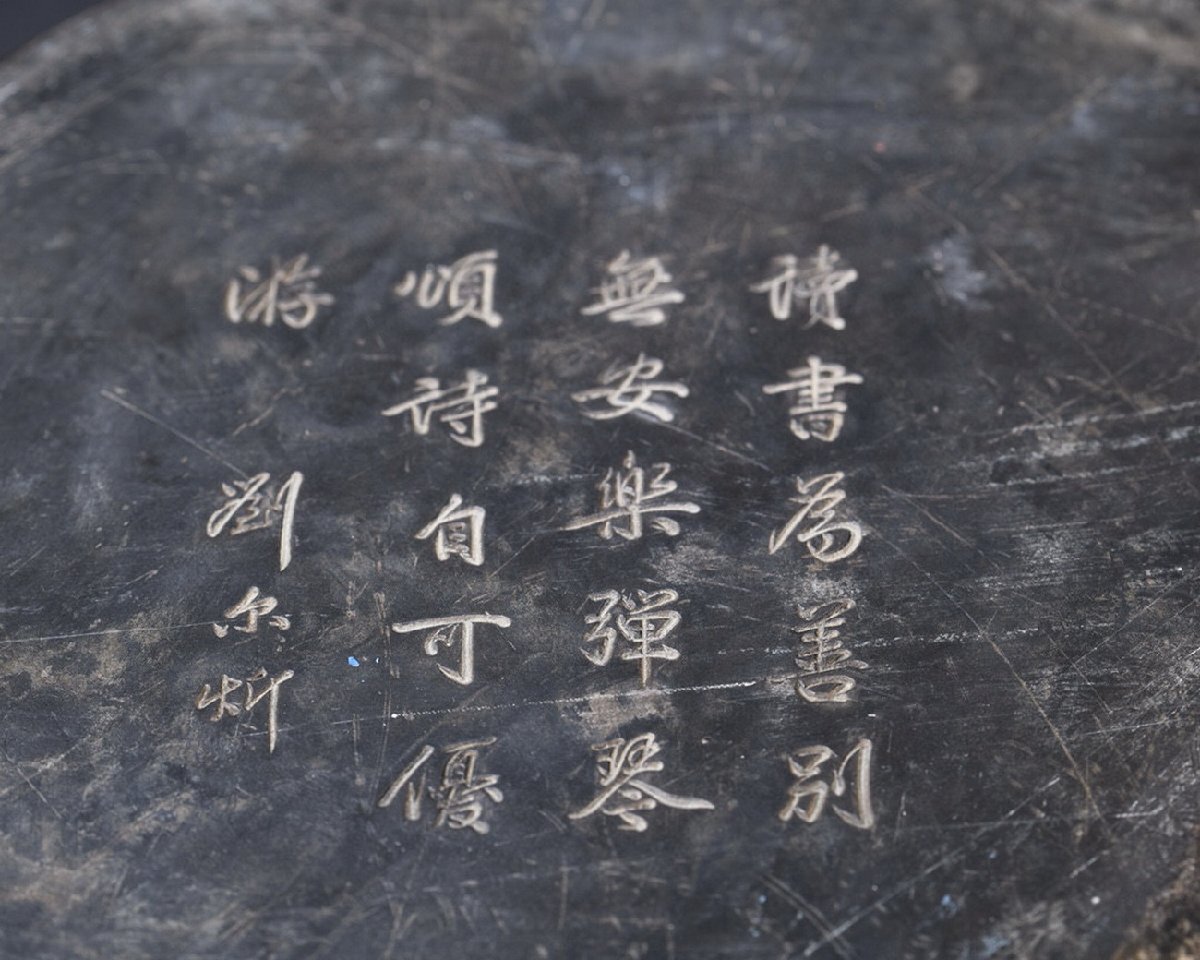 讀書為善別
無安樂彈琴
順詩自可優
游
劉尔炘